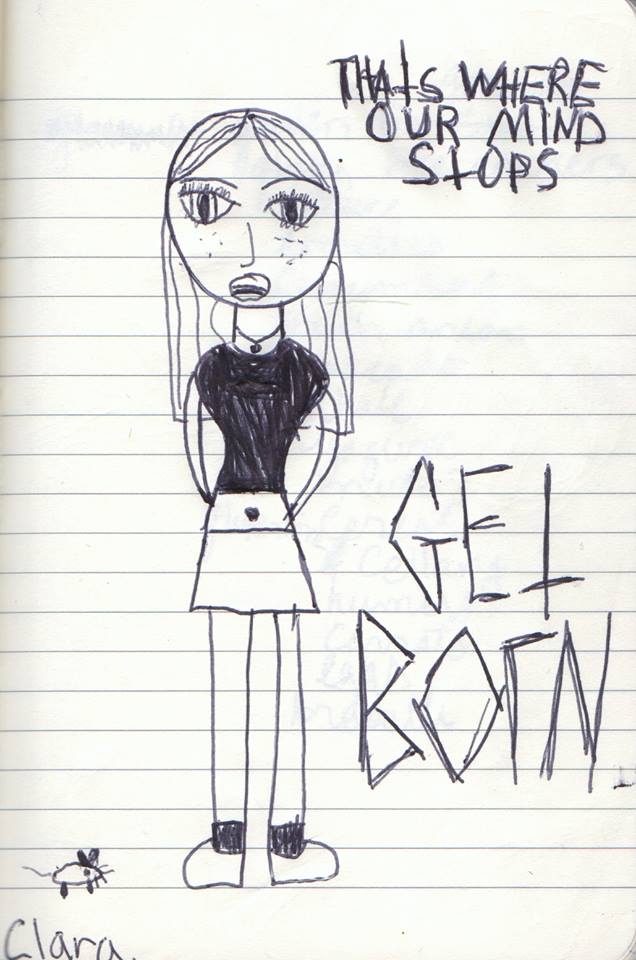 THATS WHERE
OUR MIND
STOPS
GET
BORN
Clara.